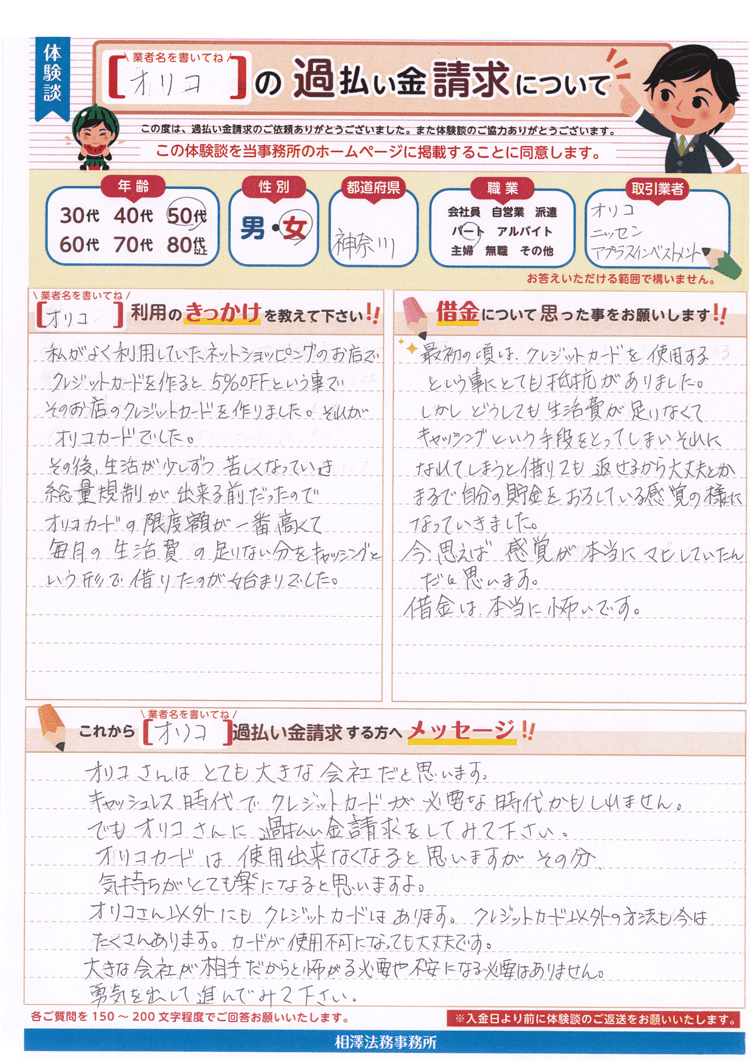 体験談
業者名を書いてね
[オリコ]の過払い金請求について
この度は、過払い金請求のご依頼ありがとうございました。また体験談のご協力ありがとうございます。
この体験談を当事務所のホームページに掲載することに同意します。
年齢
30代 40代 50代
60代 70代 80代以上
性別
男・女
都道府県
神奈川
職業
会社員 自営業 派遣
パート アルバイト
主婦 無職 その他
取引業者
オリコ
ニッセン
アプラスインベストメント
お答えいただける範囲で構いません。
業者名を書いてね
[オリコ]利用のきっかけを教えて下さい!!
私がよく利用していたネットショッピングのお店で
クレジットカードを作ると5%OFFという事で
そのお店のクレジットカードを作りました。それが
オリコカードでした。
その後、生活が少しずつ苦しくなっていき
総量規制が出来る前だったので
オリコカードの限度額が一番高くて
毎月の生活費の足りない分をキャッシングと
いう形で借りたのが始まりでした。
借金について思った事をお願いします!!
最初の頃は、クレジットカードを使用する
という事にとても抵抗がありました。
しかしどうしても生活費が足りなくて
キャッシングという手段をとってしまいそれに
なれてしまうと借りても返せるから大丈夫とか
まるで自分の貯金をおろしている感覚の様に
なっていきました。
今思えば感覚が本当にマヒしていたん
だと思います。
借金は本当に怖いです。
業者名を書いてね
これから[オリコ]過払い金請求する方へメッセージ!!
オリコさんはとても大きな会社だと思います。
キャッシュレス時代でクレジットカードが必要な時代かもしれません。
でもオリコさんに過払い金請求をしてみて下さい。
オリコカードは使用出来なくなると思いますがその分、
気持ちがとても楽になると思いますよ。
オリコさん以外にもクレジットカードはあります。クレジットカード以外の方法も今は
たくさんあります。カードが使用不可になっても大丈夫です。
大きな会社が相手だからと怖がる必要や不安になる必要はありません。
勇気を出して進んでみて下さい。
各ご質問を150～200文字程度でご回答お願いいたします。
※入金日より前に体験談のご返送をお願いいたします。
相澤法務事務所